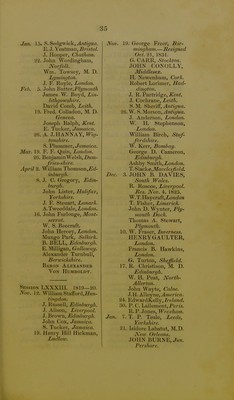 35
Jan. 15. S. Sedgwick, Antigua.
E. J. Vaatman, Bristol
J. Harper, Chatham.
22. John Werdingham,
Norfolk.
Wm. Towsey, M. D.
Lymington.
J. F. Boyes, London.
Feb. 5. John Butter, Plymouth
James W. Boyd, Lin-
lithgowshire.
David Couth, Leith.
19. Fred. Kohlschutter, M. D.
Geneva.
Joseph Ralph, Kent.
E. Tucker, Jamaica.
26. A. J. HANNAY, Wig-
townshire.
S. Plummer, Jamaica.
Mar. 19. F. F. Quin, London.
26. Benjamin Welsh, Dum-
friesshire.
April 2. William Thomson, Ed-
inburgh.
8. J. C. Gregory, Edin-
burgh.
John Lister, Halifax,
Yorkshire.
J. F. Stewart, Lanark.
A. Tweedale, London.
16. John Furlonge, Mont-
serrat.
W. S. Bencraft.
John Hervey, London.
Mungo Park, Selkirk.
B. BELL, Edinburgh.
E. Milligan, Galloway.
Alexander Turnbull,
Berwickshire.
BARON ALEXANDER
VON HUMBOLDT.
SESSION LXXXIII. 1819—20.
Nov. 14. William Stafford, Hun-
tingdon.
J. Russell, Edinburgh.
J. Alison, Liverpool.
J. Brown, Edinburgh.
John Cox, Jamaica.
S. Tucker, Jamaica.
18. Henry Hill Hickman,
Ludlow.
Nov. 19. George Frost, Bir-
mingham.—Resigned
Oct. 31, 1851.
G. CARR, Stockton.
JOHN CONOLLY,
Middlesex.
H. Newenham, Cork.
Robert Lorimer, Had-
dington.
J. B. Partridge, Kent.
J. Cochrane, Leith.
S. M. Sheriff, Antigua.
26. W. S. Morson, Antigua.
J. Anderson, London.
W. H. Stephenson,
London.
William Birch, Staf-
fordshire.
W. Kerr, Bombay.
George D. Cameron,
Edinburgh.
Ashby Smith, London.
T. Starke, Macclesfield.
Dec. 3. JOHN B. DAVIES,
South Wales.
B. Roscoe, Liverpool.
Res. Nov. 4, 1825.
W. T. Haycraft, London
T. Fisher, Limerick.
John D. Wester, Ply-
mouth Dock.
Thomas A. Stewart,
Plymouth.
10. W. Fraser, Inverness.
HENRY GAULTER,
London.
Francis B. Hawkins,
London.
G. Turton, Sheffield.
17. R. Christison, M. D.
Edinburgh.
W. H. Peat, North-
Allerton.
John Wayte, Calne.
J. H. Alleyne, America.
24. Edward Kelly, Ireland.
30. P. C. Laillement, Paris.
R. P. Jones, Wrexham.
Jan. 7. T. P. Teale, Leeds,
Yorkshire.
21. Isidore Labatut, M. D.
New Orleans.
JOHN BURNE, Jun.
Pershore.